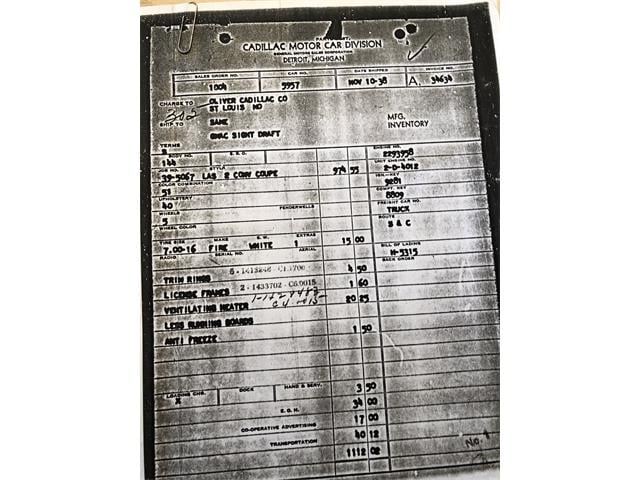 CADILLAC MOTOR CAR DIVISION
GENERAL MOTORS SALES CORPORATION
DETROIT, MICHIGAN
SALES ORDER NO. CAR NO. DATE SHIPPED INVOICE NO.
1004 5957 NOV 10-38 A, 34634
CHARGE TO OLIVER CADILLAC CO
ST LOUIS MO
SHIP TO SAME
MFG.
INVENTORY
GMAC SIGHT DRAFT
TERMS
ENGINE NO.
2293958
BODY NO. E.O.O.
144
UNIT ENGINE NO.
2-D-4012
JOB NO. STYLE
39-5067 LAS 2 CONV COUPE 974 55
IGN.-KEY
9281
COLOR COMBINATION
51
COMPT. KEY
8809
UPHOLSTERY
40
FREIGHT CAR NO.
TRUCK
WHEELS FENDERWELLS
5
ROUTE
S & C
WHEEL COLOR
TIRE SIZE MAKE S.W. EXTRAS
7.00-16 FIRE WHITE 1 15 00
BILL OF LADING
H-5315
RADIO SERIAL NO. AERIAL
BACK ORDER
5-1413248
TRIM RINGS 4 50
2-1433702 - C6.0015
LICENSE FRAMES 1 60
VENTILATING HEATER 20 25
LESS RUNNING BOARDS
ANTI FREEZE 1 50
LOADING CHG. DOCK HAND & SERV.
X 3 50
E.O.H. 34 00
CO-OPERATIVE ADVERTISING 17 00
TRANSPORTATION 40 12
1112 02
No. 1